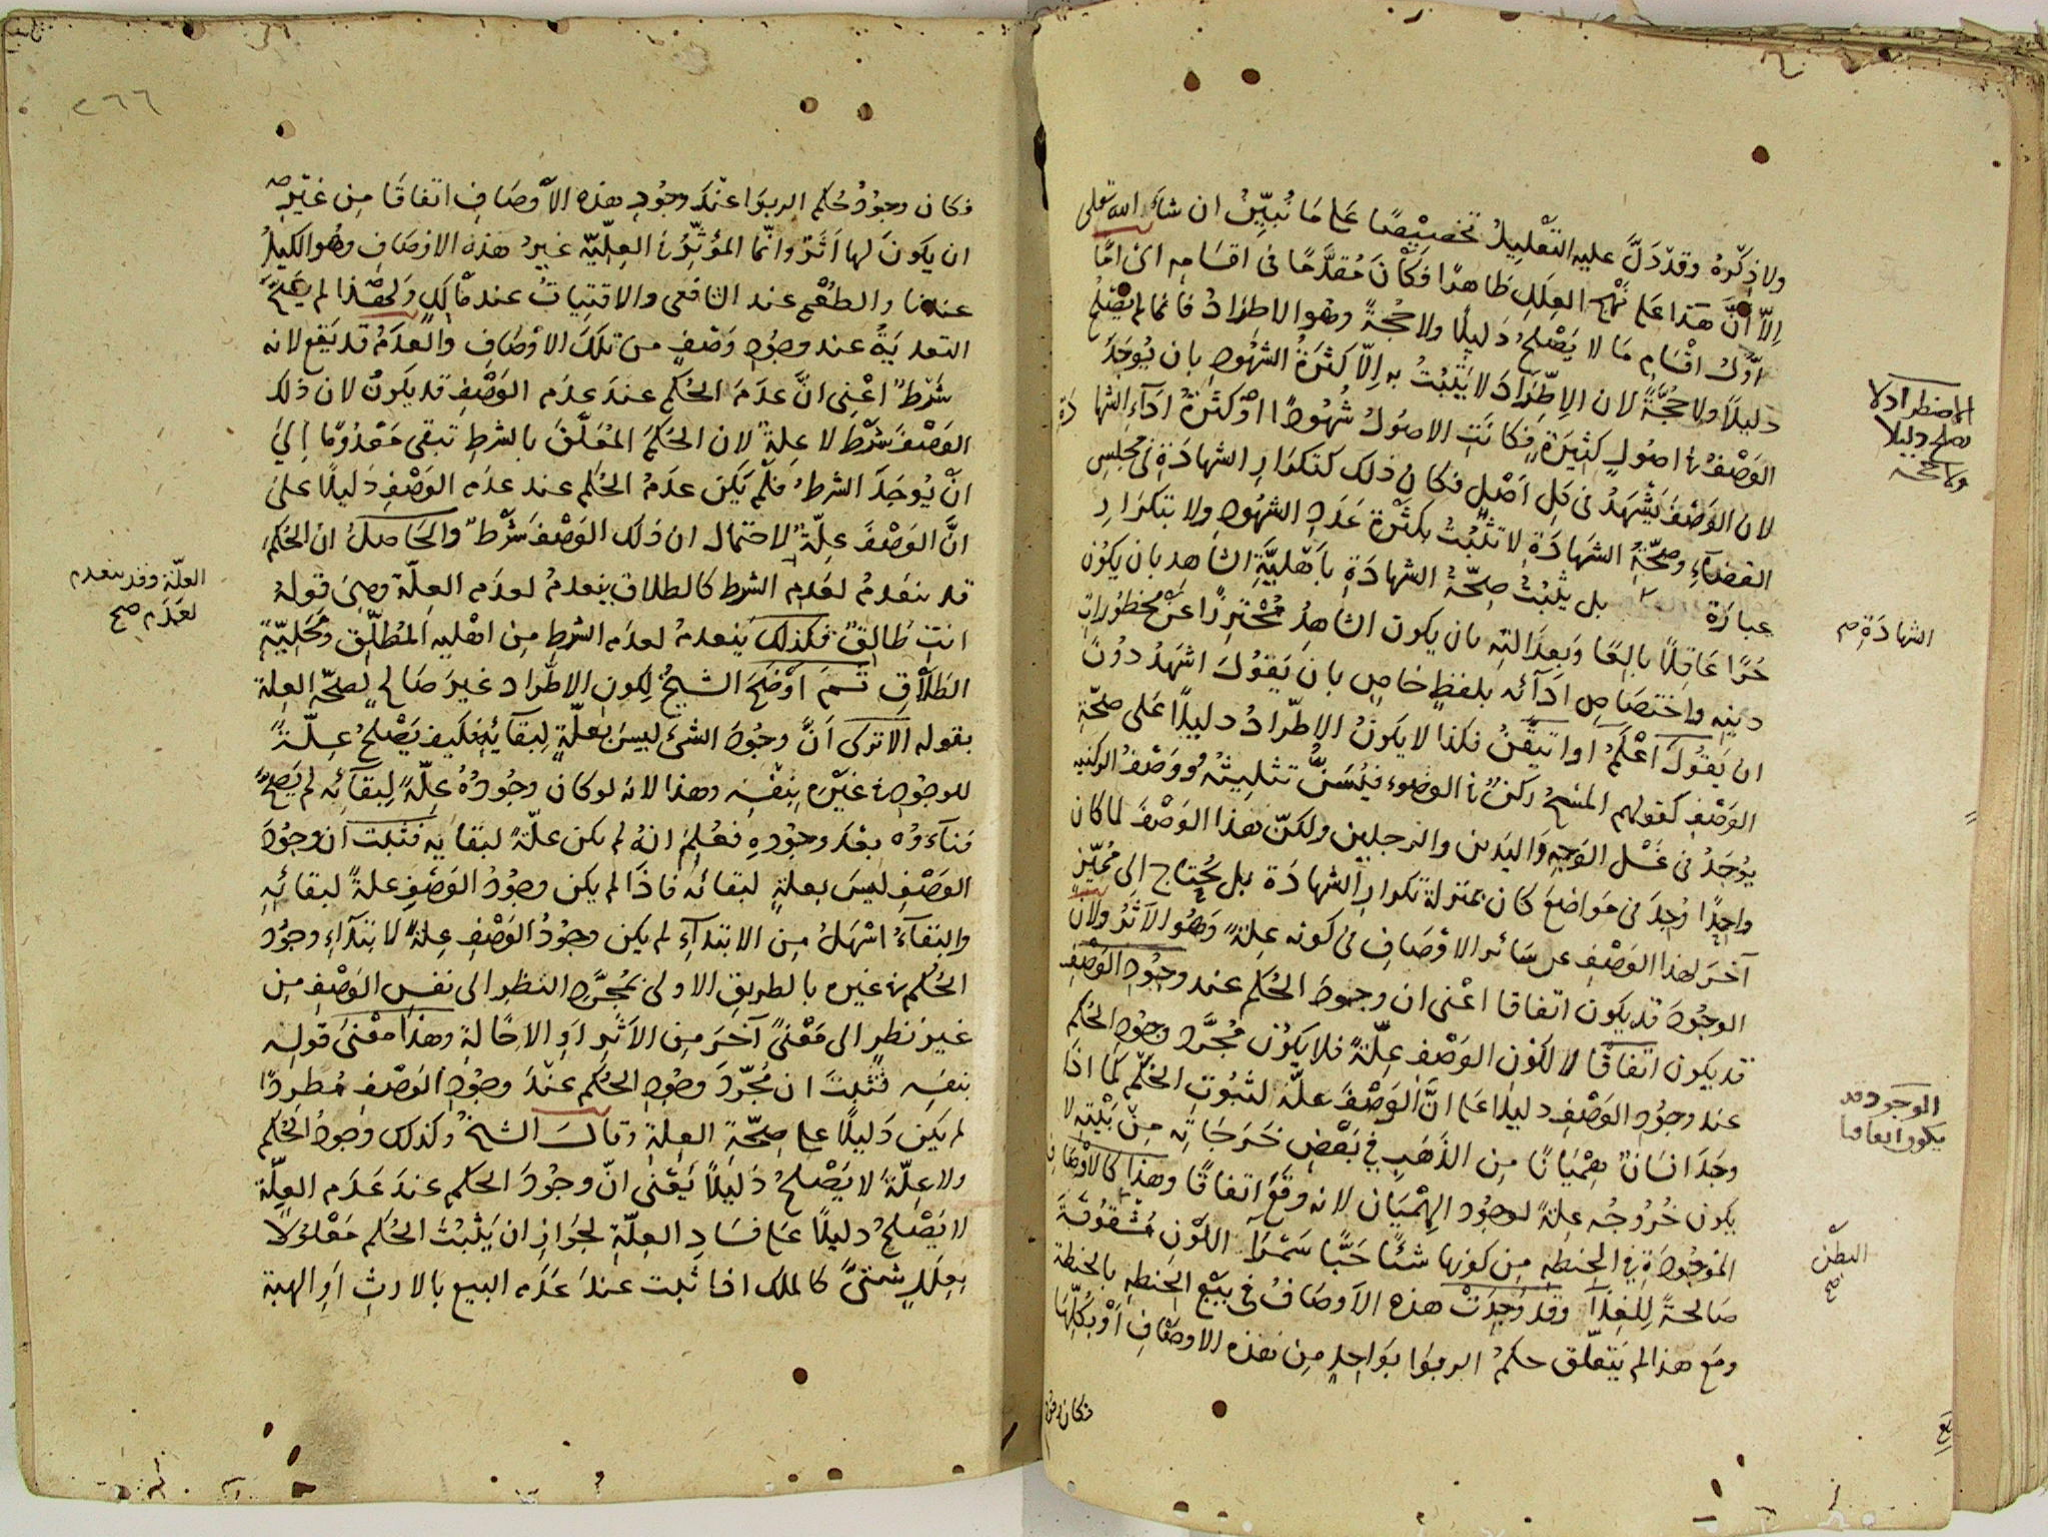 ولا ذكره وقد دل عليه التعليل تخصيصا على ما نبين ان شاء الله تعالى
الا ان هذا على نهج العلل ظاهرا فكان مقدما فى اقسامه اى اما
اول اقسام ما لا يصلح دليلا ولا حجة وهو الاطراد فانما لم يصلح
دليلا ولا حجة لان الاطراد لا يثبت به الا كثرة الشهود بان يوجد
الوصف فى اصول كثيرة فكانت الاصول شهودا او كثرة اداء الشهادة
لان الوصف يشهد فى كل اصل فكان ذلك كتكرار الشهادة فى مجلس
القضاء وصحة الشهادة لا تثبت بكثرة عدد الشهود ولا بتكرار
عبارة بل يثبت صحة الشهادة باهلية الشاهد بان يكون
حرا عاقلا بالغا وبعدالته بان يكون الشاهد محترزا عن محظورات
دينه واختصاص ادائه بلفظ خاص بان يقول اشهد دون
ان يقول اعلم او اتيقن فكذا لا يكون الاطراد دليلا على صحة
الوصف كقولهم المسح ركن فى الوضوء فيسن تثليثه ووصف الركنيه
يوجد فى غسل الوجه واليدين والرجلين ولكن هذا الوصف لما كان
واحدا وجد فى مواضع كان بمنزلة تكرار الشهادة بل يحتاج الى مميز
آخر لهذا الوصف عن سائر الاوصاف فى كونه علة وهو الاثر ولان
الوجود قد يكون اتفاقا اعنى ان وجود الحكم عند وجود الوصف
قد يكون اتفاقا لا لكون الوصف علة فلا يكون مجرد وجود الحكم
عند وجود الوصف دليلا على ان الوصف علة لثبوت الحكم كما اذا
وجد انسان هميانا من الذهب فى بعض خرجاته من بيته لا
يكون خروجه علة لوجود الهميان لانه وقع اتفاقا وهذا كالاوصاف
الموجودة فى الحنطه من كونها شئا حبا سمراء اللون مشقوقة
صالحة للغذاء وقد وجدت هذه الاوصاف فى بيع الحنطه بالحنطة
ومع هذا لم يتعلق حكم الربوا بواحد من هذه الاوصاف او بكلها
فكان وجود
الاضطراد لا
يصلح دليلا
ولا حجة
الشهادة صح
الوجود قد
يكون اتفاقا
البطن
صح
٢٦٦
فكان وجود حكم الربوا عند وجود هذه الاوصاف اتفاقا من غير
ان يكون لها اثر وانما المؤثر فى العلية غير هذه الاوصاف وهو الكيل
عندنا والطعم عند الشافعى والاقتيات عند مالك ولهذا لم يصح
التعدية عند وجود وصف من تلك الاوصاف والعدم قد يقع لانه
شرط اعنى ان عدم الحكم عند عدم الوصف قد يكون لان ذلك
الوصف شرط لا علة لان الحكم المعلق بالشرط تبقى معدوما الى
ان يوجد الشرط فلم يكن عدم الحكم عند عدم الوصف دليلا على
ان الوصف علة لاحتمال ان ذلك الوصف شرط والحاصل ان الحكم
قد ينعدم لعدم الشرط كالطلاق ينعدم لعدم العلة وهى قوله
انت طالق فكذلك ينعدم لعدم الشرط من اهليه المطلق ومحلية
الطلاق ثم اوضح الشيخ لكون الاطراد غير صالح لصحة العلة
بقوله الا ترى ان وجود الشئ ليس بعلة لبقائه فكيف يصلح علة
للوجود فى غيره بنفسه وهذا لانه لو كان وجوده علة لبقائه لم يصح
فناءه بعد وجوده فعلم انه لم يكن علة لبقايه فثبت ان وجود
الوصف ليس بعلة لبقائه فاذا لم يكن وجود الوصف علة لبقائه
والبقاء اسهل من الابتداء لم يكن وجود الوصف علة لابتداء وجود
الحكم فى غيره بالطريق الاولى بمجرد النظر الى نفس الوصف من
غير نظر الى معنى آخر من الاثر او الاحالة وهذا معنى قوله
بنفسه فثبت ان مجرد وجود الحكم عند وجود الوصف مطردا
لم يكن دليلا على صحة العلة وقال الشيخ وكذلك وجود الحكم
ولا علة لا يصلح دليلا يعنى ان وجود الحكم عند عدم العلة
لا يصلح دليلا على فساد العلة لجواز ان يثبت الحكم معلولا
بعلل شتى كالملك اذا ثبت عند عدم البيع بالارث او الهبة
العلة وقد ينعدم
لعدم صح